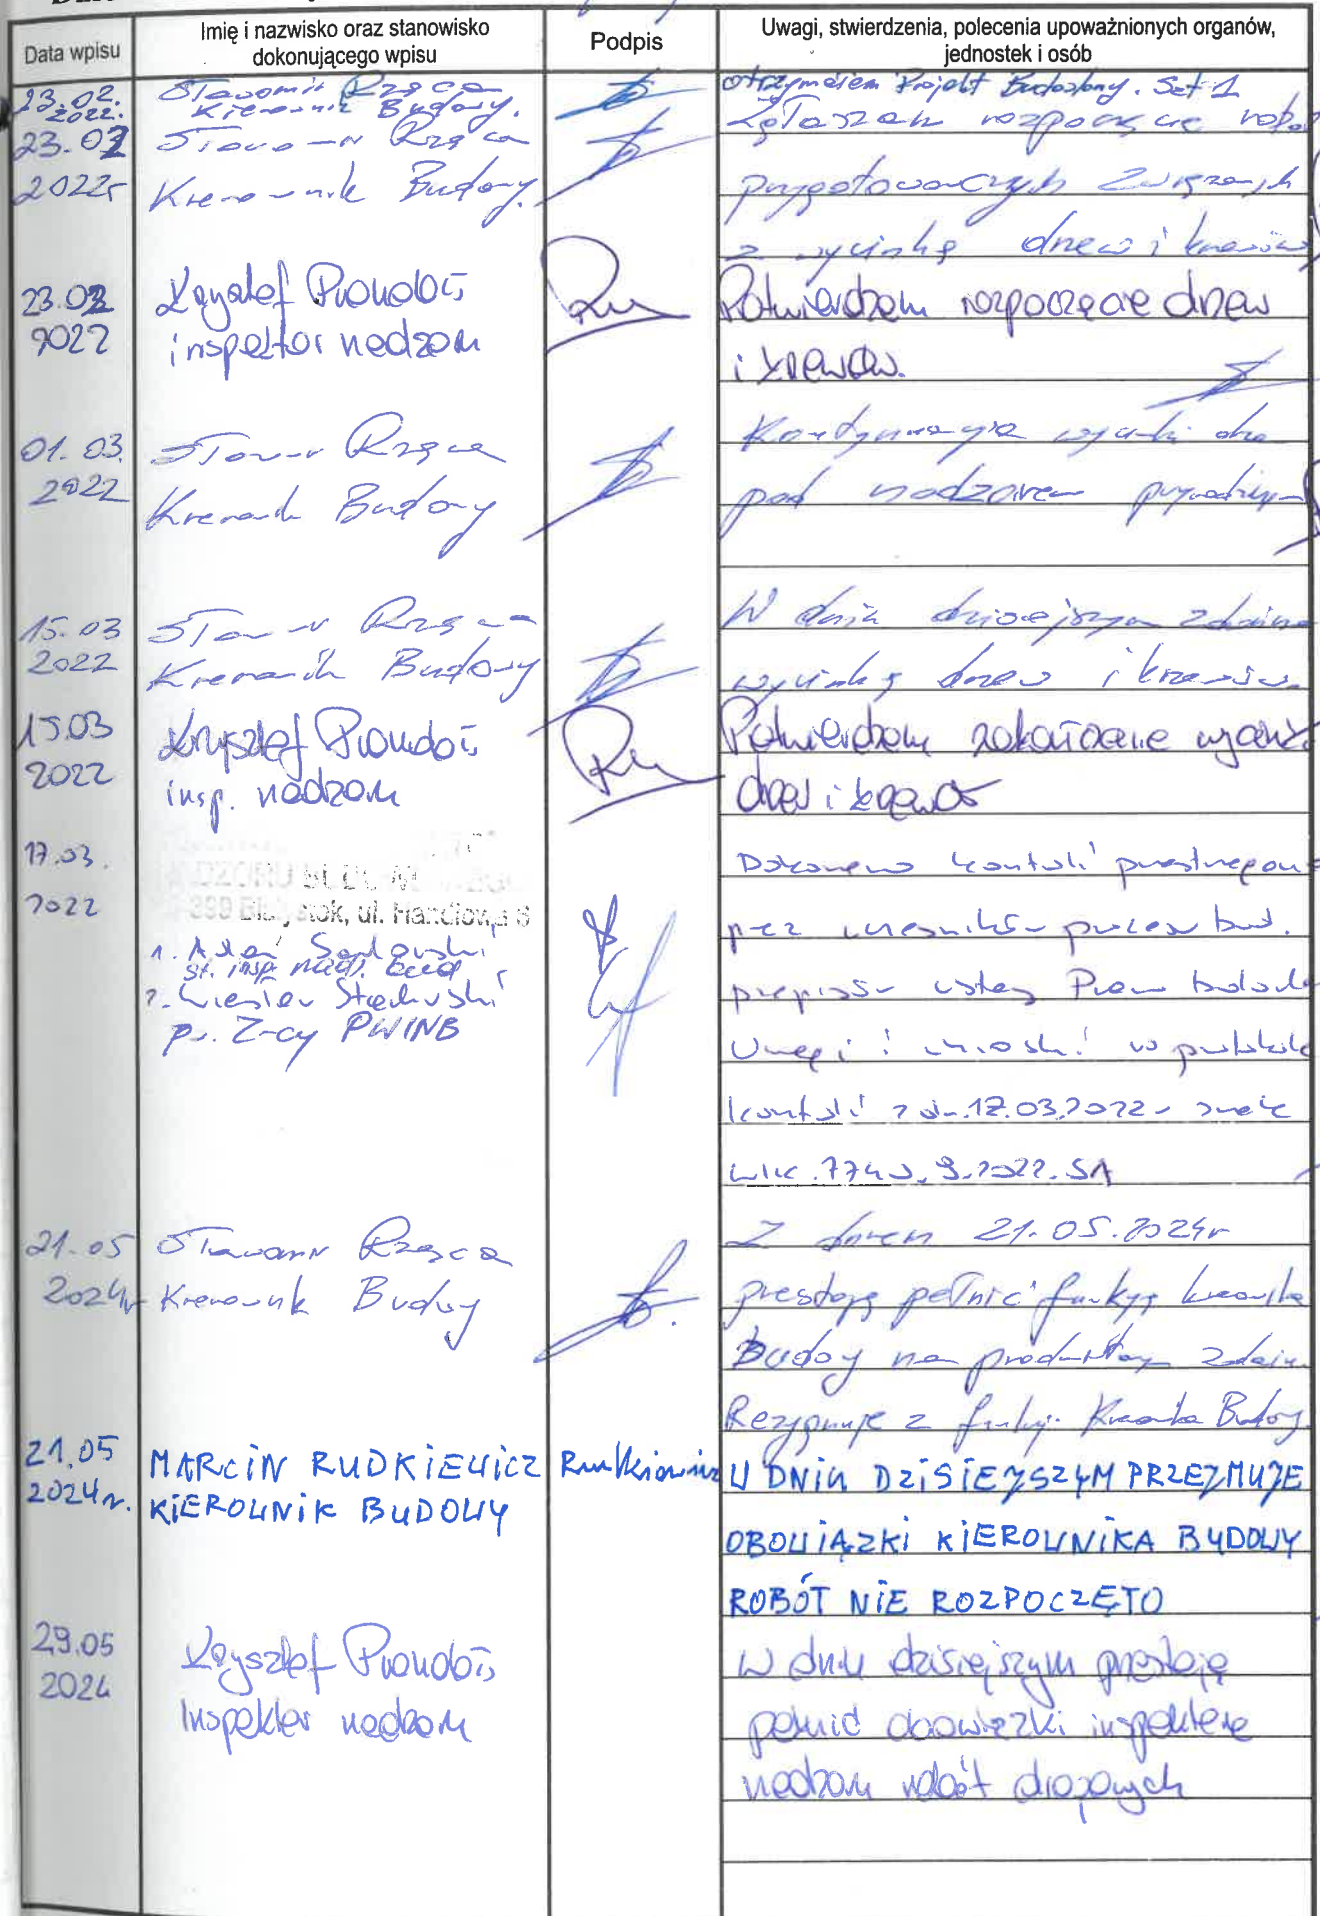 Data wpisu
Imię i nazwisko oraz stanowisko
dokonującego wpisu
Podpis
Uwagi, stwierdzenia, polecenia upoważnionych organów,
jednostek i osób
23.02.
2022r.
Sławomir Rzęca
Kierownik Budowy.
Otrzymałem Projekt Budowlany. Szt 1
23.02
2022r
Sławomir Rzęca
Kierownik Budowy.
Zgłaszam rozpoczęcie robó
przygotowawczych związanych
z wycinką drzew i krzewów
23.02
2022
Krzysztof
inspektor nadzoru
Potwierdzam rozpoczęcie drzew
i krzewów.
01.03.
2022
Sławomir Rzęca
Kierownik Budowy
Kontynuacja wycinki drze
pod nadzorem
15.03
2022
Sławomir Rzęca
Kierownik Budowy
W dniu dzisiejszym
wycinkę drzew i krzewów
15.03
2022
Krzysztof
insp. nadzoru
Potwierdzam zakończenie wycinki
drzew i krzewów
17.03.
2022
ul. Handlowa 6
1. Adam
st. insp. nadz. bud
2. Wiesław
p.o. Z-cy PWINB
Dokonano kontroli przestrzegania
przez uczestników procesu bud.
przepisów ustawy Prawo budowla
Uwagi i wnioski w protokole
kontroli z dn. 17.03.2022 znak
21.05
2024r
Sławomir Rzęca
Kierownik Budowy
Z dniem 21.05.2024r
przestaję pełnić funkcję kierownika
Budowy na
Rezygnuje z funkcji Kierownika Budowy
21.05
2024r.
MARCIN RUDKIEWICZ
KIEROWNIK BUDOWY
Rudkiewicz
W DNIU DZISIEJSZYM PRZEJMUJE
OBOWIĄZKI KIEROWNIKA BUDOWY
ROBÓT NIE ROZPOCZĘTO
29.05
2024
Krzysztof
Inspektor nadzoru
W dniu dzisiejszym przestaję
pełnić obowiązki inspektora
nadzoru robót drogowych